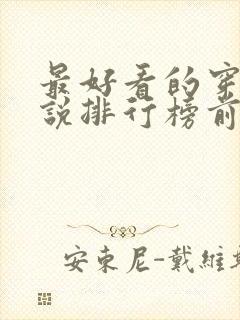 最好看的穿
説排行榜前
安東尼-戴維斯